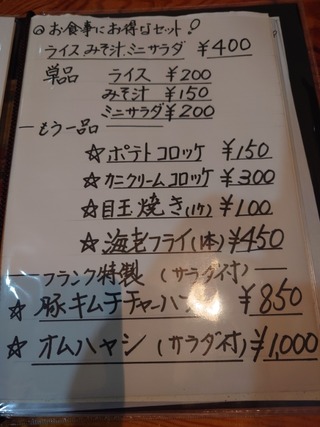 ◎お食事にお得なセット!
ライス みそ汁 ミニサラダ ¥400
単品 ライス ¥200
みそ汁 ¥150
ミニサラダ ¥200
もう一品
☆ポテトコロッケ ¥150
☆カニクリームコロッケ ¥300
☆目玉焼き(1ケ) ¥100
☆海老フライ(1本) ¥450
フランク特製 (サラダ付)
☆ 豚キムチチャーハン ¥850
☆ オムハヤシ (サラダ付) ¥1,000